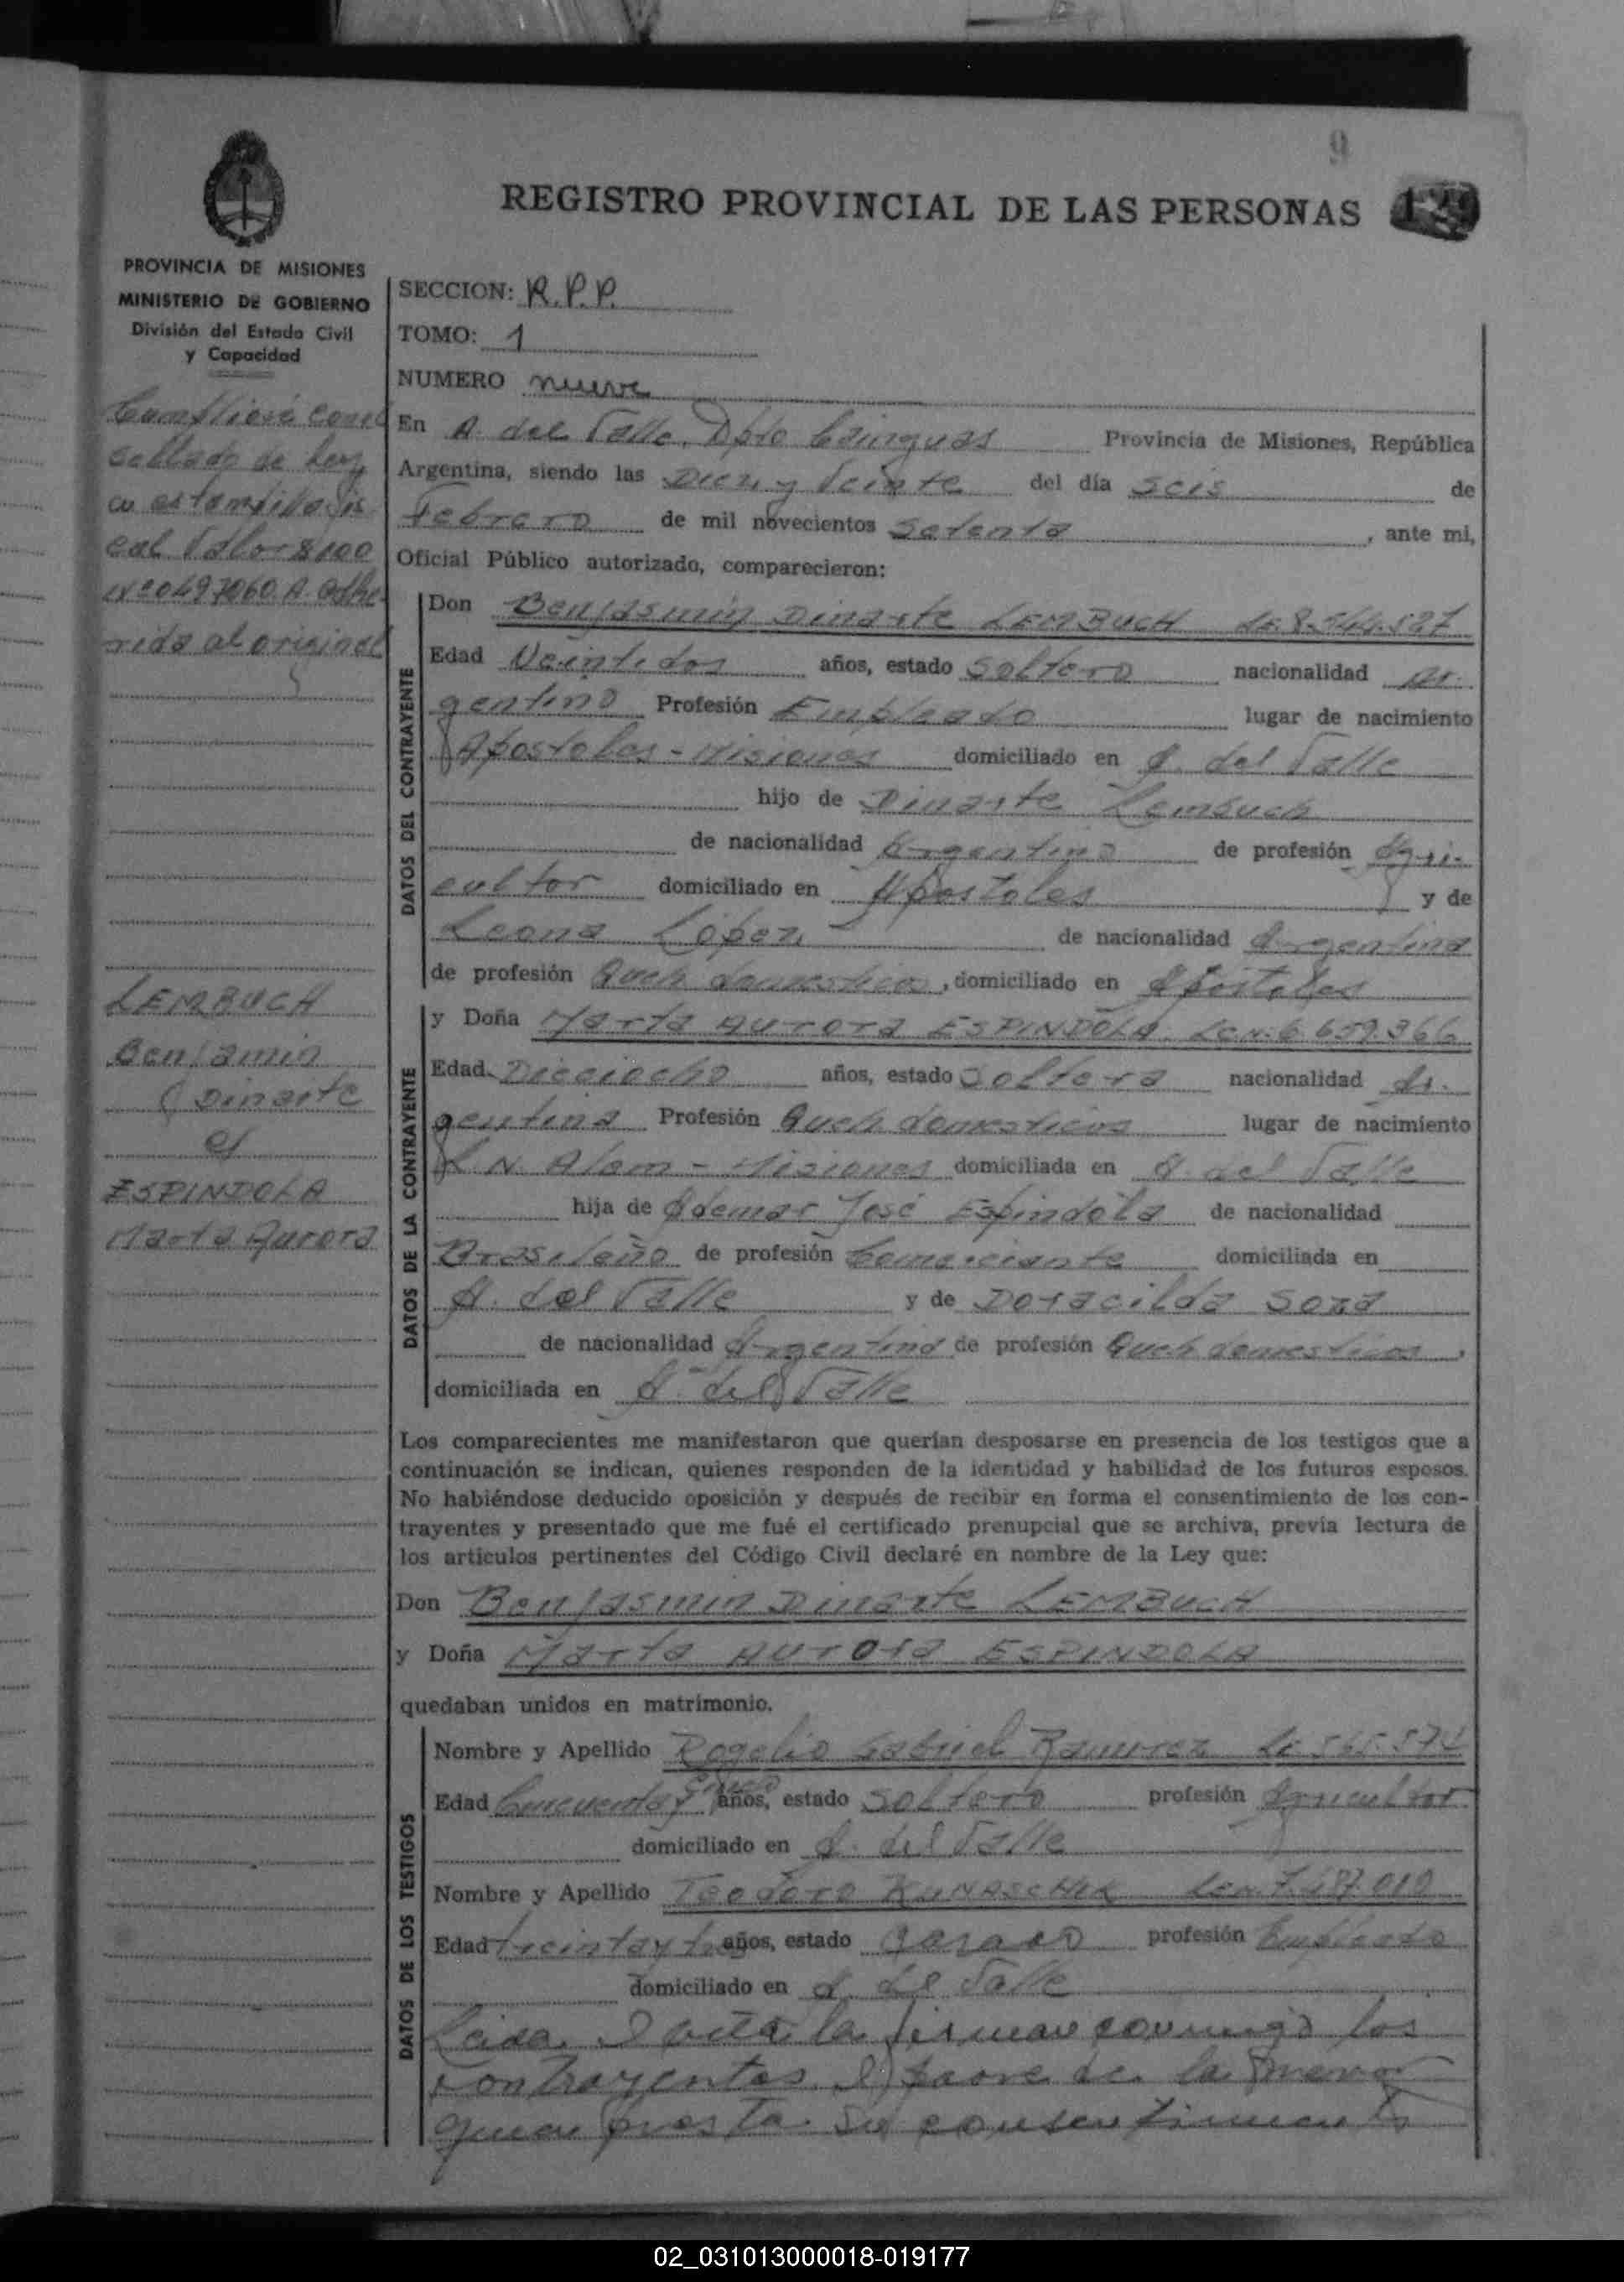 9
REGISTRO PROVINCIAL DE LAS PERSONAS 129
PROVINCIA DE MISIONES
MINISTERIO DE GOBIERNO
División del Estado Civil
y Capacidad
sellado de Ley
c/ estampilla fis
cal Valor $ 100
Nº 0497060 A. adhe-
rida al original
LEMBUCH
Benjamin
Dinarte
c/
ESPINDOLA
Marta Aurora
SECCION: R.P.P.
TOMO: 1
NUMERO nueve
En A. del Valle, Dpto Cainguas Provincia de Misiones, República
Argentina, siendo las Diez y Veinte del día seis de
Febrero de mil novecientos setenta, ante mi,
Oficial Público autorizado, comparecieron:
DATOS DEL CONTRAYENTE
Don Benjasmin Dinarte LEMBUCH LE. 8.544.527
Edad Veintidos años, estado soltero nacionalidad Ar-
gentino Profesión Empleado lugar de nacimiento
Apostoles - Misiones domiciliado en A. del Valle
hijo de Dinarte Lembuch
de nacionalidad Argentino de profesión Agri-
cultor domiciliado en Apostoles y de
Leona López de nacionalidad Argentina
de profesión Queh. domesticos, domiciliado en Apostoles
DATOS DE LA CONTRAYENTE
y Doña Marta Aurora ESPINDOLA LC.N: 6.659.366
Edad Dieciocho años, estado soltera nacionalidad Ar-
gentina Profesión Queh domesticos lugar de nacimiento
L N. Alem - Misiones domiciliada en A. del Valle
hija de Ademar José Espindola de nacionalidad
Brasileño de profesión Comerciante domiciliada en
A. del Valle y de Doracilda Soza
de nacionalidad Argentina de profesión Queh domesticos,
domiciliada en A. del Valle
Los comparecientes me manifestaron que querían desposarse en presencia de los testigos que a
continuación se indican, quienes responden de la identidad y habilidad de los futuros esposos.
No habiéndose deducido oposición y después de recibir en forma el consentimiento de los con-
trayentes y presentado que me fué el certificado prenupcial que se archiva, previa lectura de
los artículos pertinentes del Código Civil declaré en nombre de la Ley que:
Don Benjasmin Dinarte LEMBUCH
y Doña Marta Aurora ESPINDOLA
quedaban unidos en matrimonio.
DATOS DE LOS TESTIGOS
Nombre y Apellido Rogelio Gabriel Ramirez
Edad Cincuenta y cinco años, estado soltero profesión Agricultor
domiciliado en A. del Valle
Nombre y Apellido Teodoro KUNASCHIK
Edad treinta y tres años, estado casado profesión Empleado
domiciliado en A. del Valle
Leida el acta la firman conmigo los
contrayentes el padre de la menor
quien presta su consentimiento
02_031013000018-019177